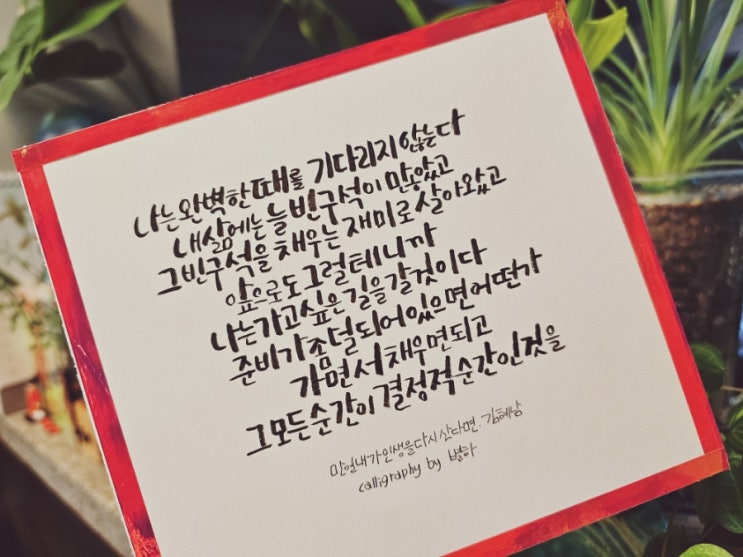 나는 완벽한 때를 기다리지 않는다
내 삶에는 늘 빈구석이 많았고
그 빈구석을 채우는 재미로 살아왔고
앞으로도 그럴테니까
나는 가고 싶은 길을 갈 것이다
준비가 좀 덜 되어 있으면 어떤가
가면서 채우면 되고
그 모든 순간이 결정적 순간인 것을
만일 내가 인생을 다시 산다면. 김혜남
calligraphy by 별하